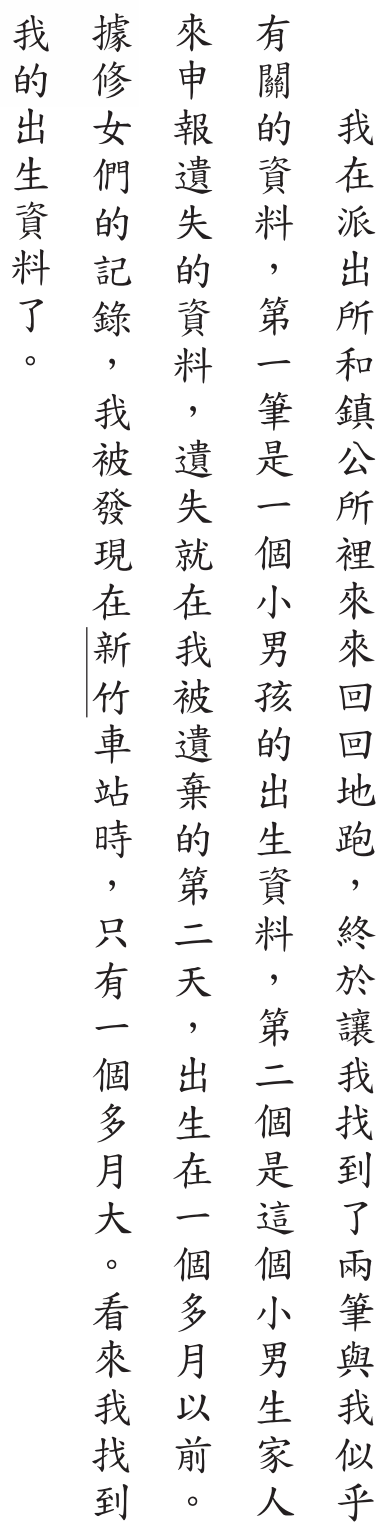 我在派出所和鎮公所裡來來回回地跑，終於讓我找到了兩筆與我似乎
有關的資料，第一筆是一個小男孩的出生資料，第二個是這個小男生家人
來申報遺失的資料，遺失就在我被遺棄的第二天，出生在一個多月以前。
據修女們的記錄，我被發現在新竹車站時，只有一個多月大。看來我找到
我的出生資料了。